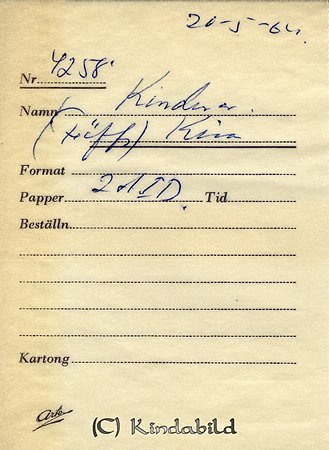 20-5-64.
Nr 4258
Namn Kinder
(Träff) Kisa
Format
Papper 2 st ID. Tid
Beställn.
Kartong
Arto
(C) Kindabild